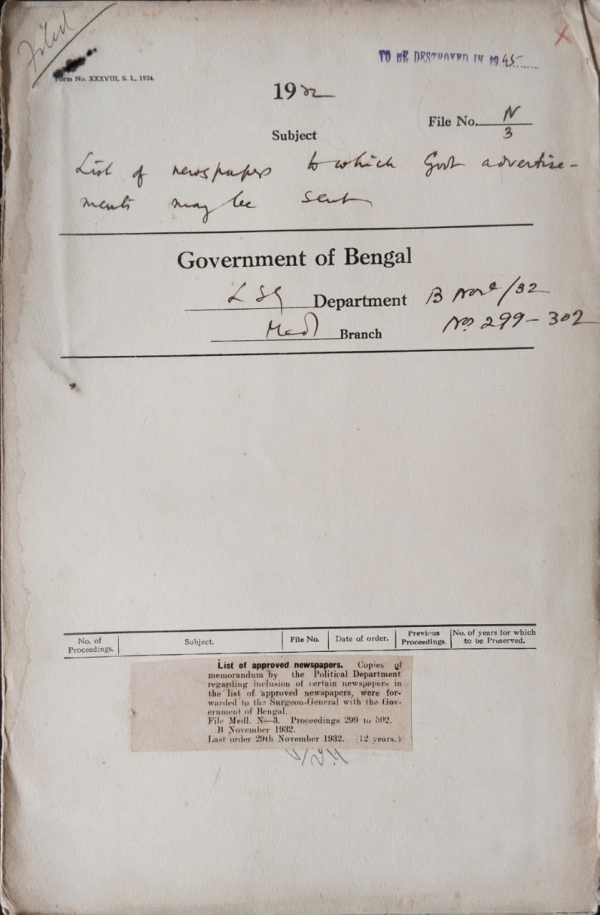 Filed
Form No. XXXVIII, S. L., 1924.
TO BE DESTROYED IN 1945
1932
File No. N/3
Subject
List of newspapers to which Govt advertise-
ments may be sent
Government of Bengal
LSG Department B Novr/32
Medl Branch Nos 299-302
No. of Proceedings. Subject. File No. Date of order. Previous Proceedings. No. of years for which to be Preserved.
List of approved newspapers. Copies of
memorandum by the Political Department
regarding inclusion of certain newspapers in
the list of approved newspapers, were for-
warded to the Surgeon-General with the Gov-
ernment of Bengal.
File Medl. N—3. Proceedings 299 to 302.
B November 1932.
Last order 29th November 1932. (12 years.)